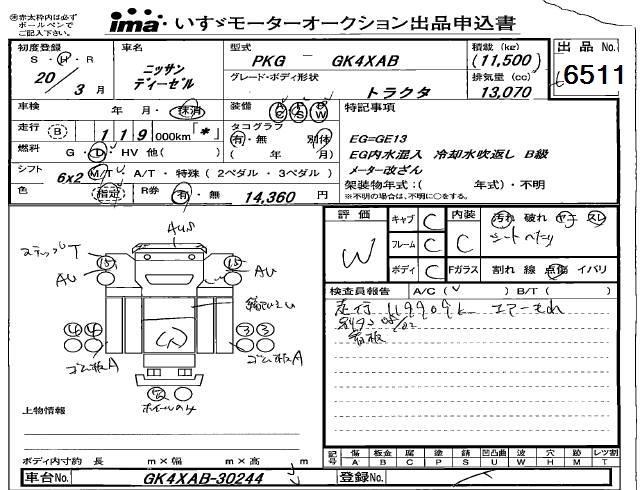 ※赤太枠内は必ず
ボールペンで
ご記入ください。
ima・いすゞモーターオークション出品申込書
初度登録
S・H・R
20 3 月
車名
ニッサン
ディーゼル
型式
PKG － GK4XAB
グレード・ボディ形状
トラクタ
積載 (kg)
(11,500)
排気量 (cc)
13,070
出品 No.
6511
車検 年・月・抹消
装備 A/C P/S P/W
特記事項
走行 B 1 1 9 000km「*」
タコグラフ
有・無 別体
( 年 月)
EG=GE13
EG内水混入 冷却水吹返し B級
メーター改ざん
燃料 G・D・HV 他( )
シフト 6x2 M/T・A/T・特殊(2ペダル・3ペダル)
架装物年式：( 年式)・不明
※不明の場合は、不明に○をする。
色 指定 R券 有・無 14,360 円
評価
W
キャブ C
フレーム C
ボディ C
内装
C
汚れ 破れ ヤニ スレ
シートへたり
Fガラス 割れ 線 点傷 イバリ
検査員報告 A/C ( ) B/T ( )
看板
AUS
ステップ T
15 15
AU AU
4 4 3 3
ゴム板A ゴム板A
ホイールのみ
上物情報
ボディ内寸約 長 m×幅 m×高 m
記号 傷 A 板金 B 腐 C 塗 P 錆 S 凹凸曲 U 波 W 穴 H 跡 M レツ割 T
車台No. GK4XAB-30244
登録No.